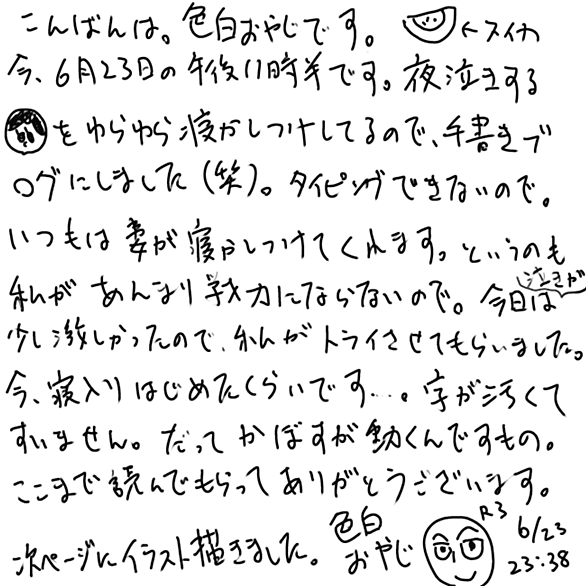 こんばんは。色白おやじです。 ←スイカ
今、6月23日の午後11時半です。夜泣きする
をゆらゆら寝かしつけしてるので、手書きブ
ログにしました(笑)。タイピングできないので。
いつもは妻が寝かしつけてくれます。というのも
私があんまり戦力にならないので。今日は泣きが
少し激しかったので、私がトライさせてもらいました。
今、寝入りはじめたくらいです…。字が汚くて
すいません。だってかぼすが動くんですもの。
ここまで読んでもらってありがとうございます。
次ページにイラスト描きました。
色白
おやじ
R3
6/23
23:38